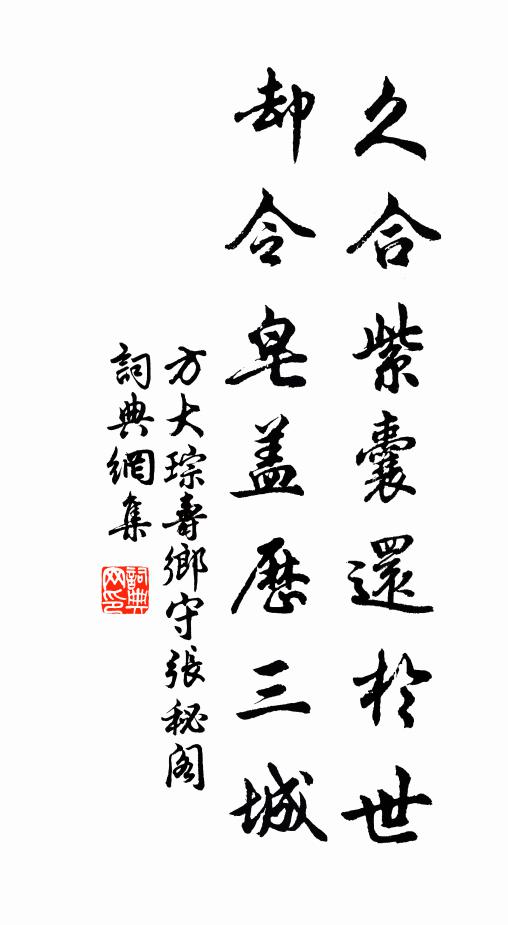 久合紫囊還於世
却令皂盖歷三城
方大琮壽鄉守張秘阁
詞典網集
詞典网印